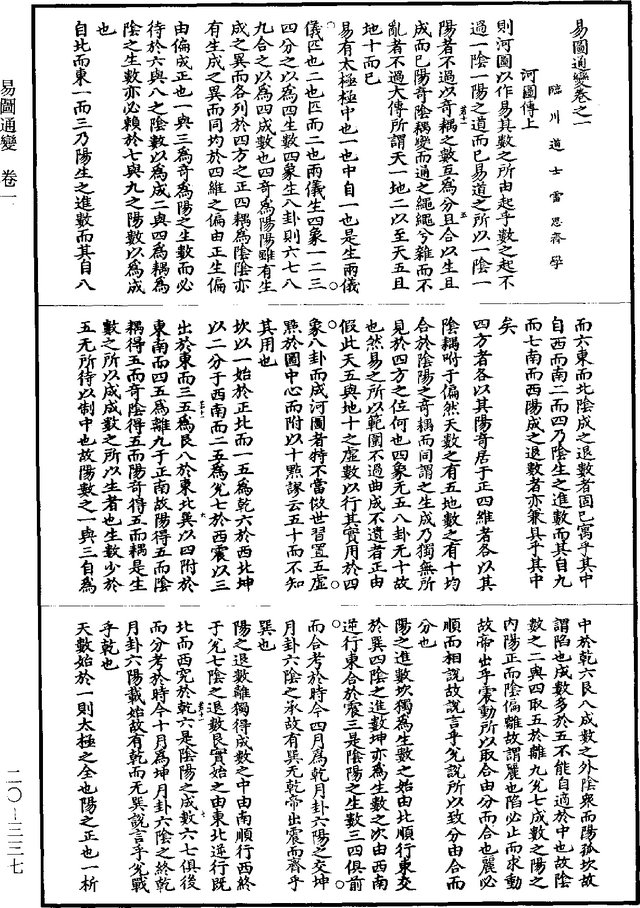 易圖通變卷之一
臨川道士雷思齊學
河圖傳上
則河圖以作易其數之所由起乎數之起不
過一陰一陽之道而已易道之所以一陰一
陽者不過以奇耦之數互爲分且合以生且
成而已陽奇陰耦變而通之繩繩兮雜而不
亂者不過大傳所謂天一地二以至天五且
地十而已
易有太極極中也一也中自一也是生兩儀
儀匹也二也匹而二也兩儀生四象一二三
四分之以爲四生數四象生八卦則六七八
九合之以爲四成數也四奇爲陽陽雖有生
成之異而各列於四方之正四耦爲陰陰亦
有生成之異而同均於四維之偏由正生偏
由偏成正也一與三爲奇爲陽之生數而必
待於六與八之陰數以爲成二與四爲耦爲
陰之生數亦必賴於七與九之陽數以爲成
也
自北而東一而三乃陽生之進數而其自八
而六東而北陰成之退數者固已寓乎其中
自西而南二而四乃陰生之進數而其自九
而七南而西陽成之退數者亦兼具乎其中
矣
四方者各以其陽奇居于正四維者各以其
陰耦附于偏然天數之有五地數之有十均
合於陰陽之奇耦而同謂之生成乃獨無所
見於四方之位何也四象无五八卦无十故
也然易之所以範圍不過曲成不遺者正由
假此天五與地十之虛數以行其實用於四
象八卦而成河圖者特不當倣世習置五虛
點於圖中心而附以十點謬云五十而不知
其用也
坎以一始於正北而一五爲乾六於西北坤
以二分于西南而二五爲兌七於西震以三
出於東而三五爲艮八於東北巽以四附於
東南而四五爲離九于正南故陽得五而陰
耦得五而奇陰得五而陽奇得五而耦是生
數之所以成成數之所以生者也生數少於
五无所待以制中也故陽數之一與三自爲
中於乾六艮八成數之外陰衆而陽孤坎故
謂陷也成數多於五不能自適於中也故陰
數之二與四取五於離九兌七成數之陽之
内陽正而陰偏離故謂麗也陷必止而求動
故帝出乎震動所以取合由分而合也麗必
順而相說故說言乎兌說所以致分由合而
分也
陽之進數坎獨爲生數之始由北順行東交
於巽四陰之進數坤亦爲生數之次由西南
逆行東合於震三是陰陽之生數三四俱前
而合考於時今四月爲乾月卦六陽之交坤
月卦六陰之承故有巽无乾帝出震而齊乎
巽也
陽之退數離獨得成數之中由南順行西終
于兌七陰之退數艮實始之由東北逆行既
北而西究於乾六是陰陽之成數六七俱後
而分考於時今十月爲坤月卦六陰之終乾
月卦六陽載始故有乾而无巽說言乎兌戰
乎乾也
天數始於一則太極之全也陽之正也一析
易圖通變 卷一
二〇—三三七